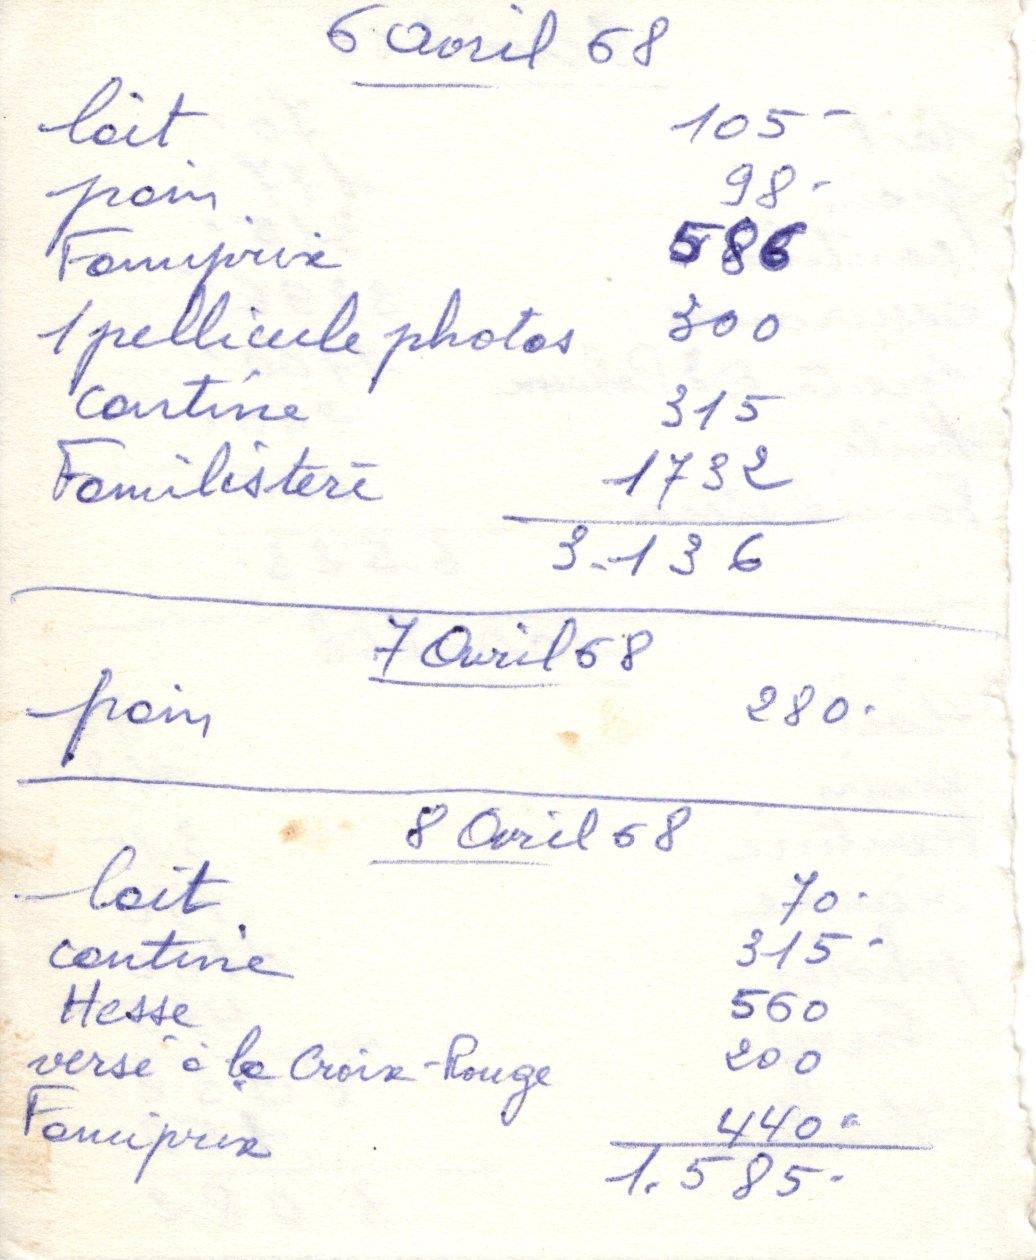 6 Avril 68
lait 105-
pain 98-
Famiprix 586
1 pellicule photos 300
cantine 315
Familistère 1732
3.136
7 Avril 68
pain 280.
8 Avril 68
lait 70.
cantine 315-
Hesse 560
versé à la Croix-Rouge 200
Famiprix 440.
1.585.